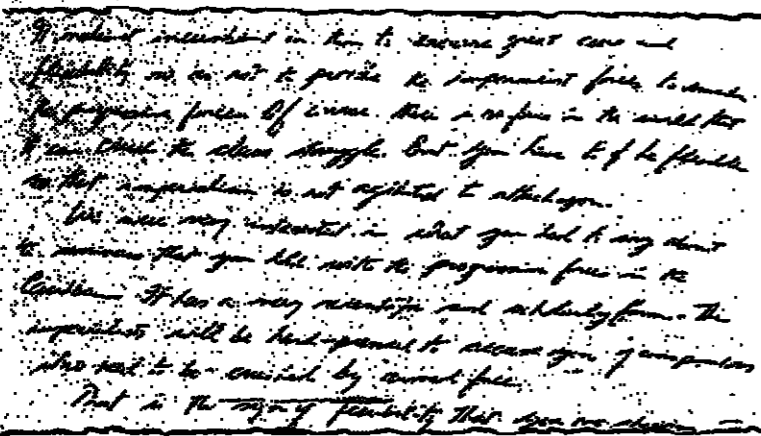 It makes it incumbent on them to exercise great care and
flexibility so as not to provoke the imperialist forces to smash
the progressive forces. Of course there is no force in the world that
can the class struggle. But you have to be flexible
so that imperialism is not agitated to attack you.
We were very interested in what you had to say about
the seminar that you held with the progressive forces in the
Caribbean It has a very scientific and scholarly form. The
imperialists will be hard-pressed to accuse you of
who need to be crushed by armed force.
That is the sign of flexibility that you are